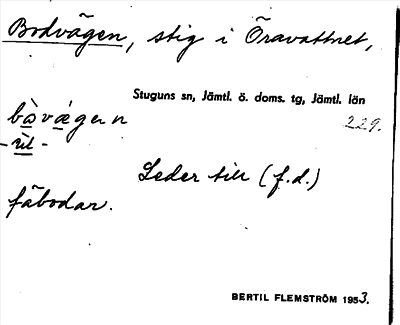 Bodvägen, stig i Öravattnet,
Stuguns sn, Jämtl. ö. doms. tg, Jämtl. län
229.
bòvǽgen
-ùl-
Leder till (f.d.)
fäbodar.
BERTIL FLEMSTRÖM 1953.